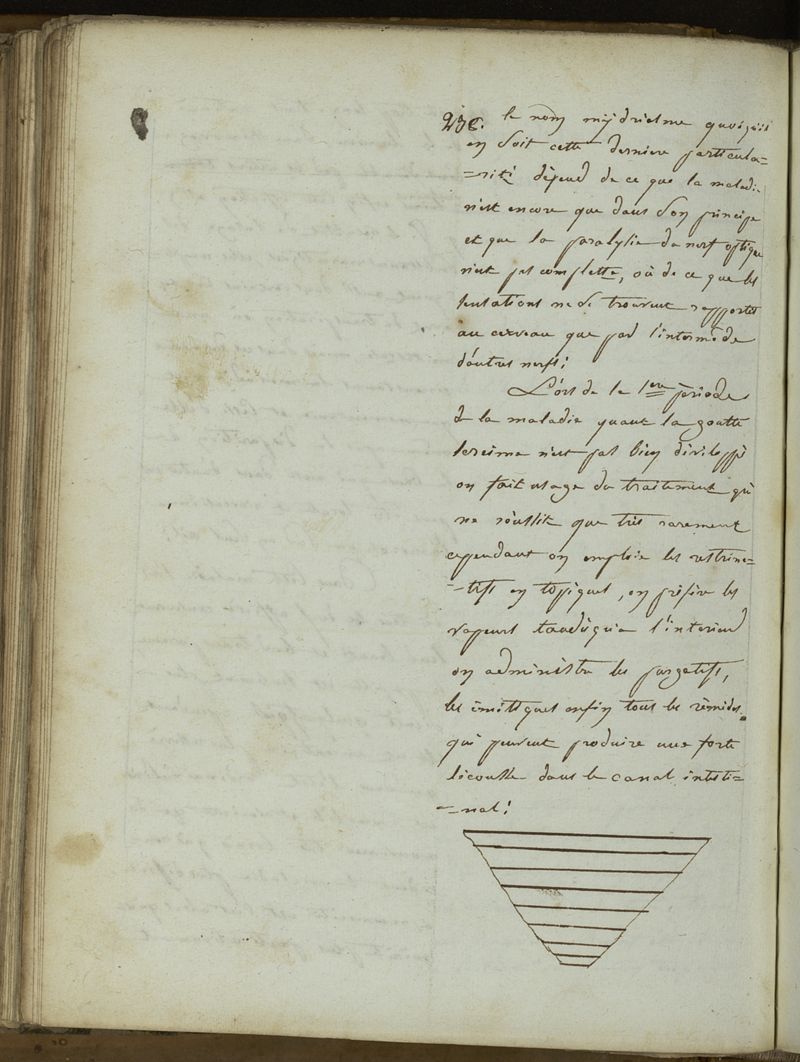 236. le nom mydriasme quoiqu'il
en soit cette derniere particula=
=rité dépend de ce que la maladie
n'est encore que dans son principe
et que la paralysie du nerf optique
n'est pas complette, où de ce que les
sensations ne se trouvent rapportés
au cerveau que par l'intermède
d'autres nerfs;
Lors de la 1ere pèriode
de la maladie quant la goutte
sereine n'est pas bien diveloppé
on fait usage du traitement qui
ne réussit que très rarement
cependant on emploie les restrinc=
=tifs en topiques, on préfère les
vapeurs tandisqu'a l'interieur
on administre les purgatifs,
les émétiques enfin tous les rèmides
qui peuvent produire une forte
sécousse dans le canal intesti=
=nal;